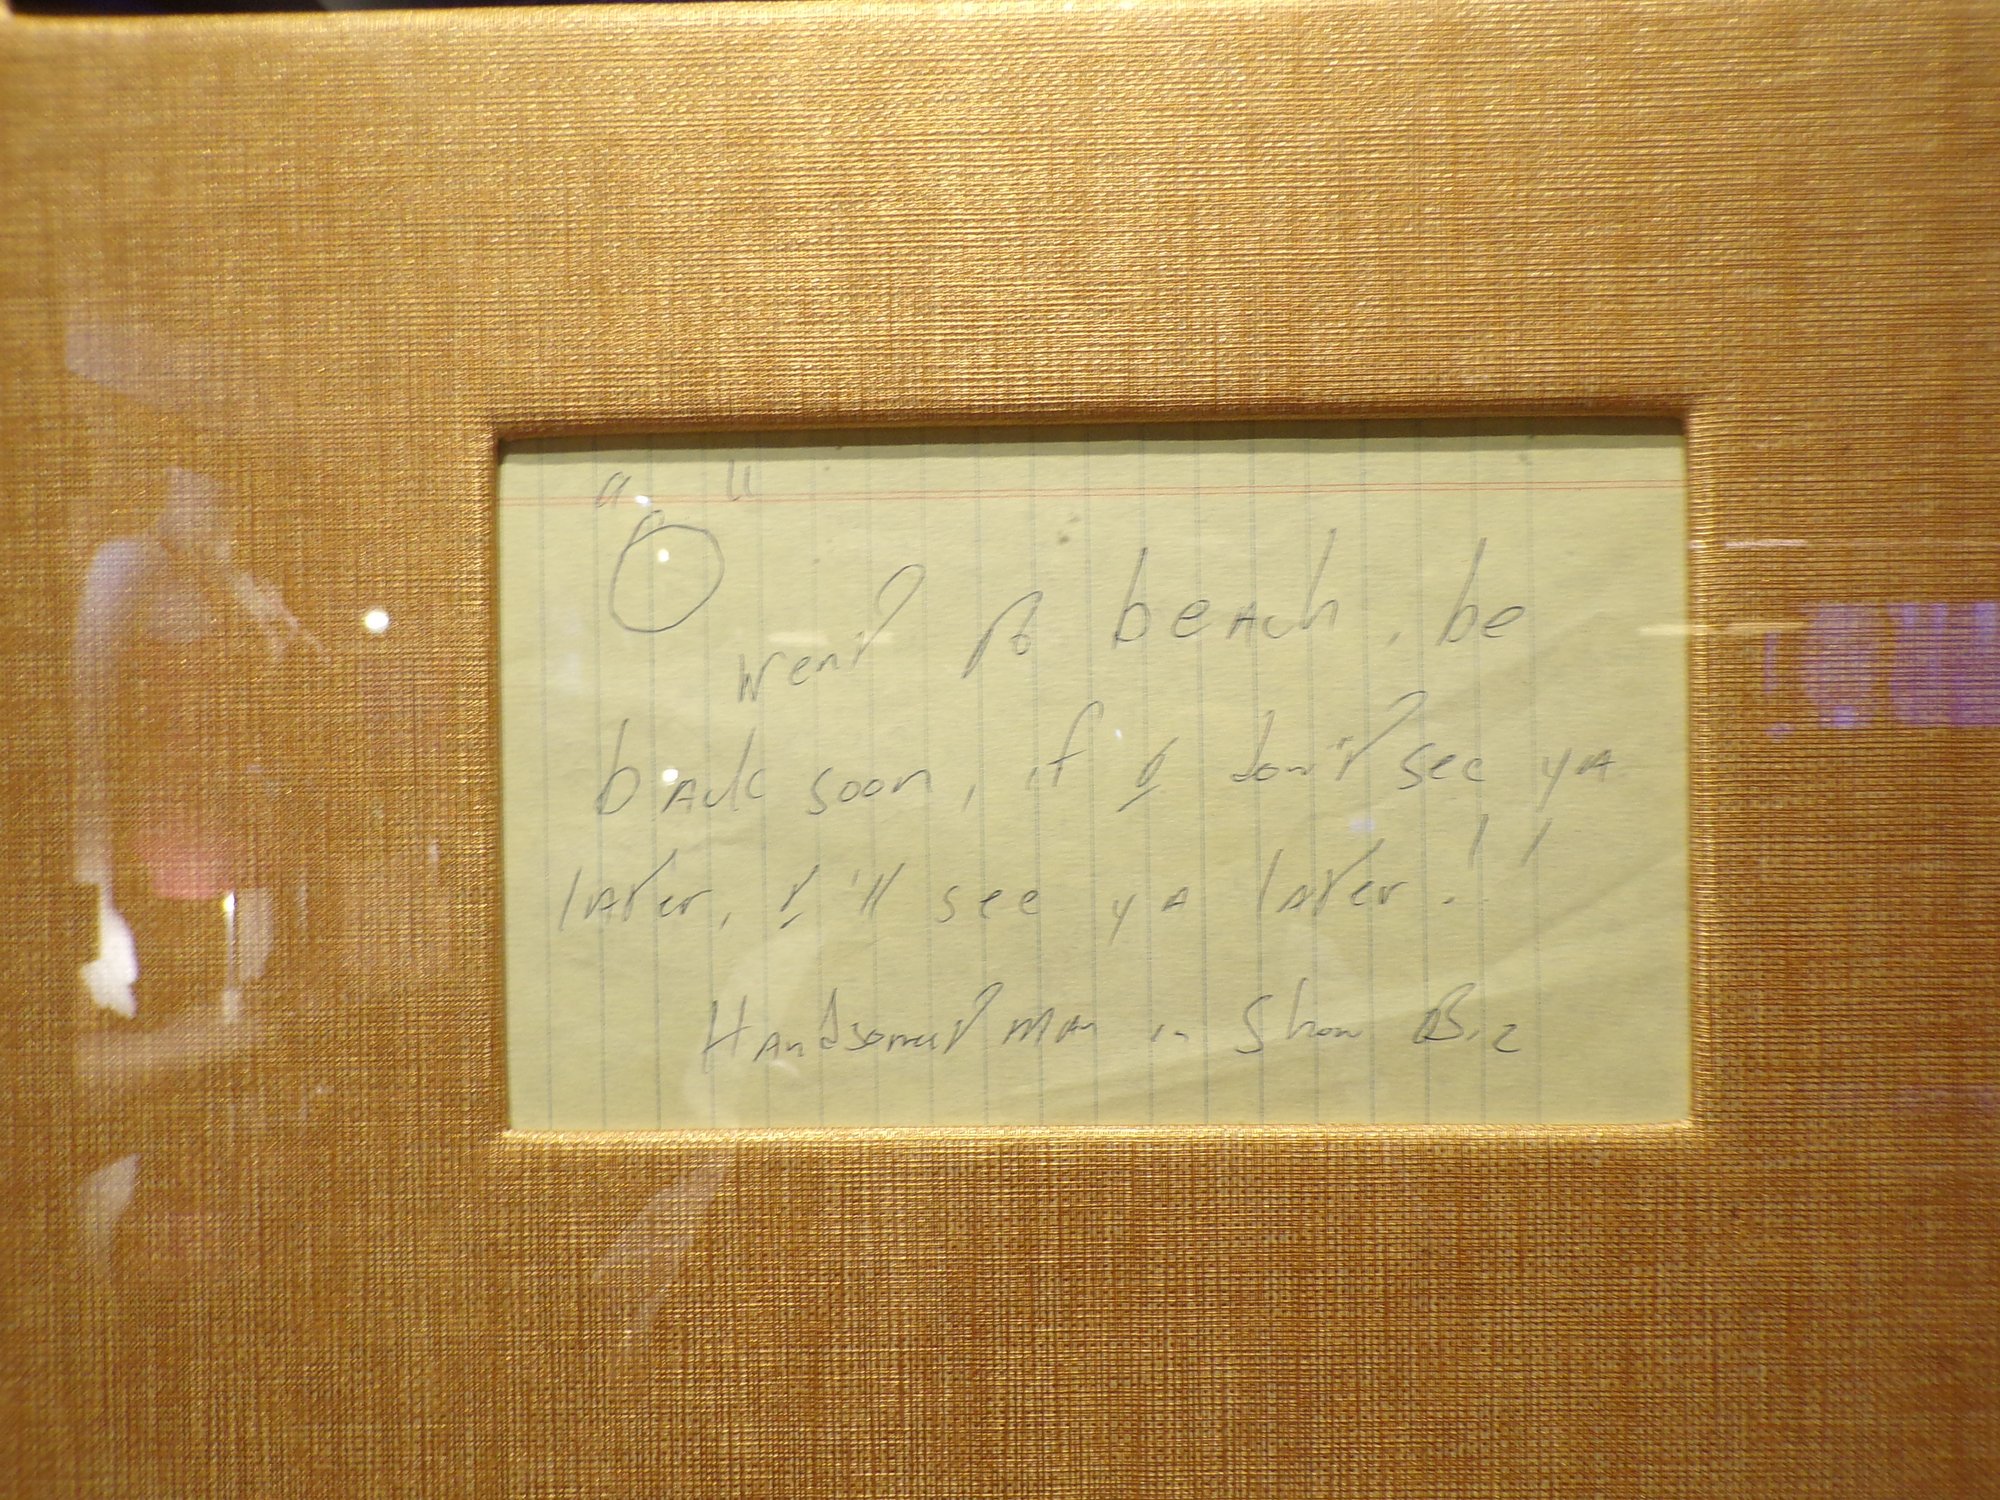 "O"
went to beach, be
back soon, if I don't see ya
later, I'll see ya later!!
Handsomest man in Show Biz